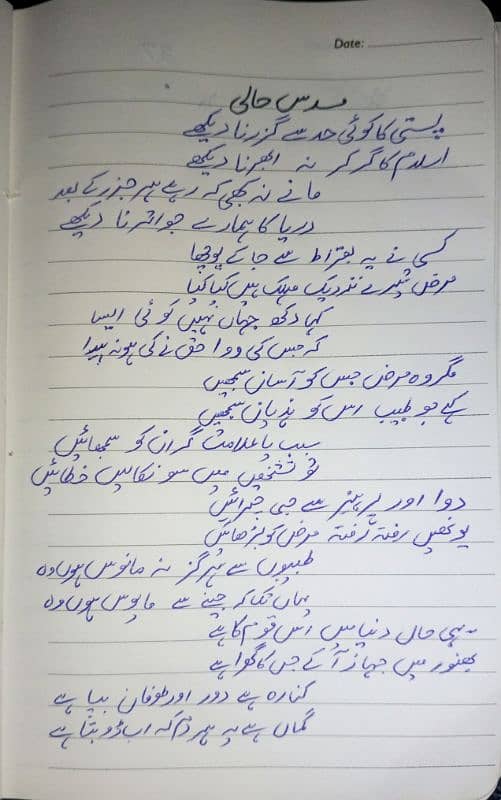 Date:
مسدس حالی
پستی کا کوئی حد سے گزرنا دیکھے
اسلام کا گر کر نہ ابھرنا دیکھے
مانے نہ کبھی کہ مد ہے ہر جزر کے بعد
دریا کا ہمارے جو اترنا دیکھے
کسی نے یہ بقراط سے جا کے پوچھا
مرض تیرے نزدیک مہلک ہیں کیا کیا
کہا دکھ جہاں میں نہیں کوئی ایسا
کہ جس کی دوا حق نے کی ہو نہ پیدا
مگر وہ مرض جس کو آسان سمجھیں
کہے جو طبیب اس کو ہذیان سمجھیں
سبب یا علامت گر ان کو سمجھائیں
تو تشخیص میں سو نکالیں خطائیں
دوا اور پرہیز سے جی چرائیں
یونہی رفتہ رفتہ مرض کو بڑھائیں
طبیبوں سے ہرگز نہ مانوس ہوں وہ
یہاں تک کہ جینے سے مایوس ہوں وہ
یہی حال دنیا میں اس قوم کا ہے
بھنور میں جہاز آ کے جس کا گھرا ہے
کنارہ ہے دور اور طوفان بپا ہے
گماں ہے یہ ہر دم کہ اب ڈوبتا ہے